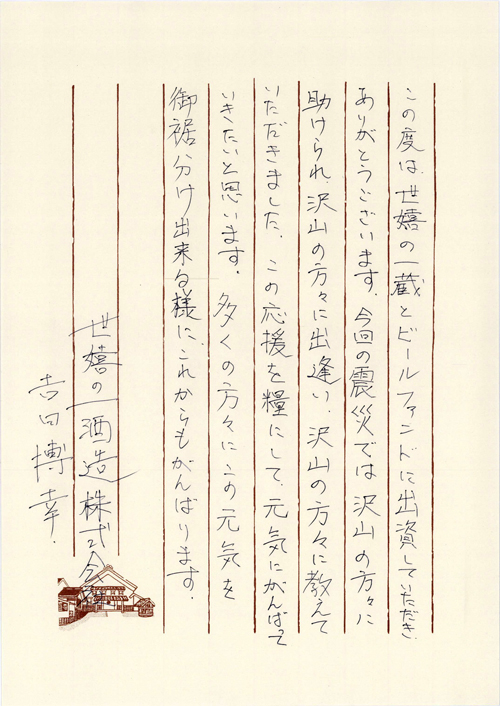 この度は、世嬉の一蔵とビールファンドに出資していただき、
ありがとうございます。今回の震災では沢山の方々に
助けられ、沢山の方々に出逢い、沢山の方々に教えて
いただきました。この応援を糧にして、元気にがんばって
いきたいと思います。多くの方々にこの元気を
御裾分け出来る様に、これからもがんばります。
世嬉の一酒造株式会社
吉田博幸.